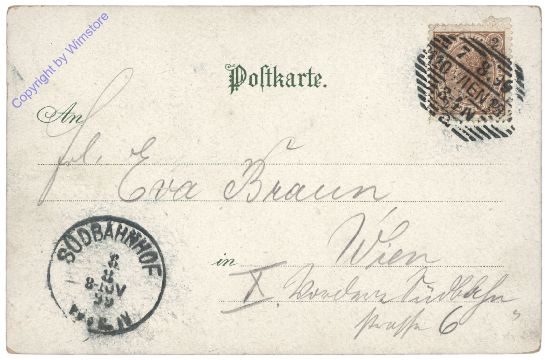 Copyright by Wimstore
Postkarte.
An
Frl. Eva Braun
in Wien
X. Vordere Südbahn
strasse 6
SÜDBAHNHOF
8
99
WIEN